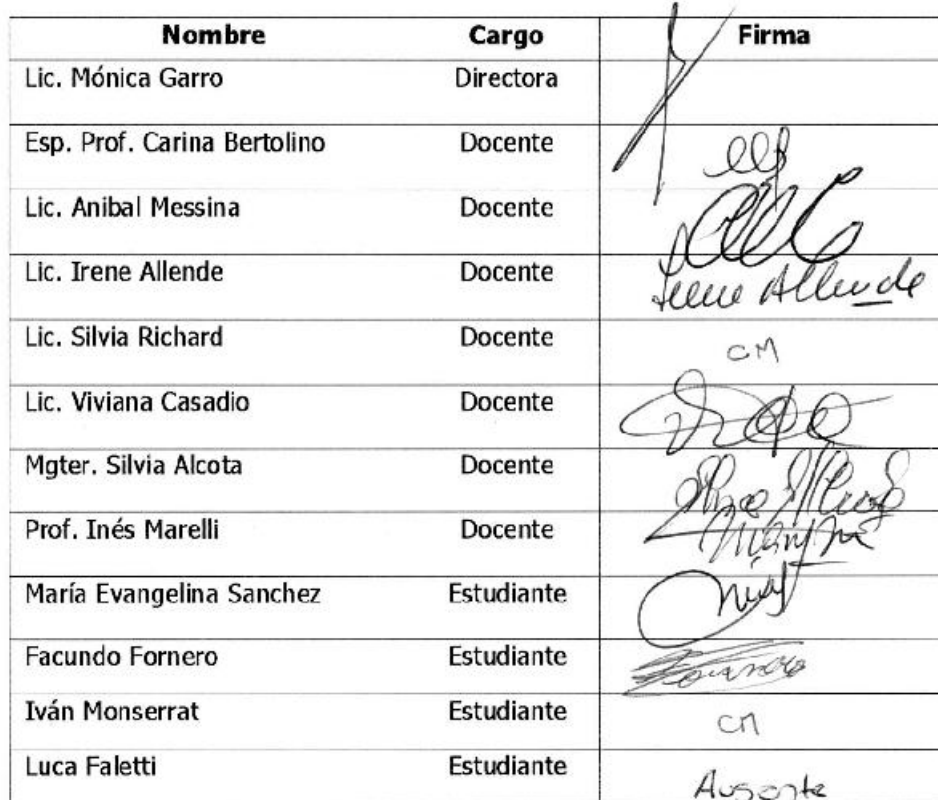 Nombre Cargo Firma
Lic. Mónica Garro Directora
Esp. Prof. Carina Bertolino Docente
Lic. Anibal Messina Docente
Lic. Irene Allende Docente Irene Allende
Lic. Silvia Richard Docente CM
Lic. Viviana Casadio Docente
Mgter. Silvia Alcota Docente
Prof. Inés Marelli Docente
María Evangelina Sanchez Estudiante
Facundo Fornero Estudiante
Iván Monserrat Estudiante CM
Luca Faletti Estudiante Ausente